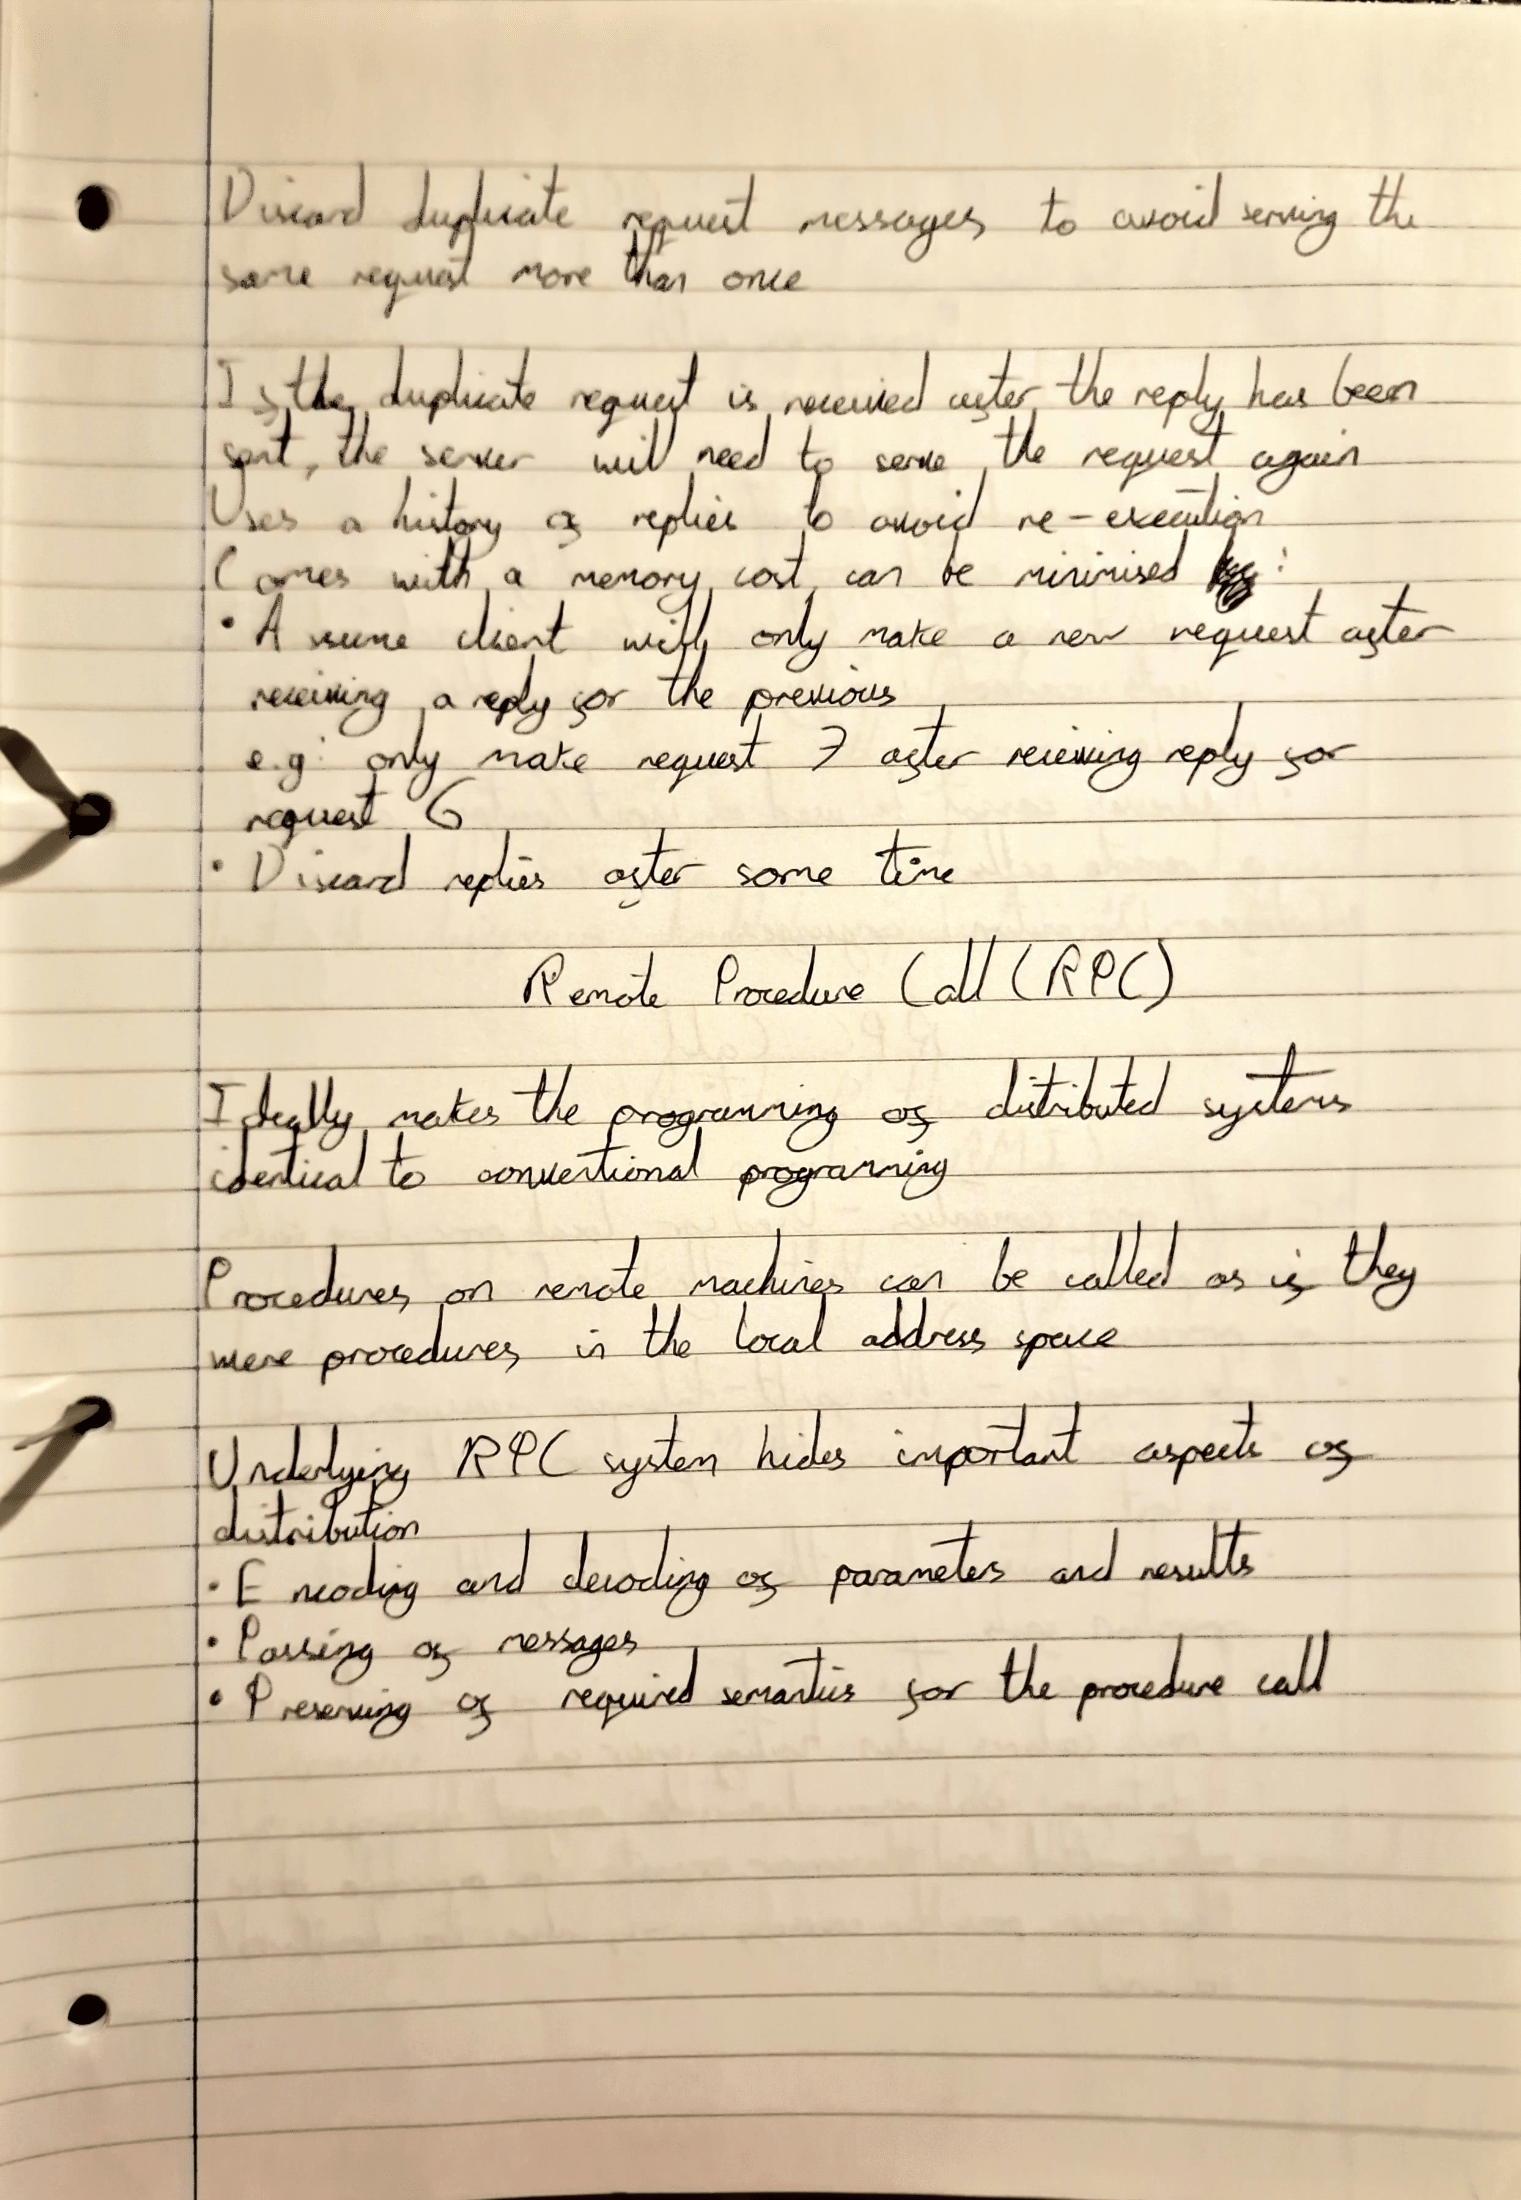 Discard duplicate request messages to avoid serving the
same request more than once
If the duplicate request is received after the reply has been
sent, the server will need to serve the request again
Uses a history of replies to avoid re-execution
Comes with a memory cost, can be minimised :
• Assume client will only make a new request after
receiving a reply for the previous
e.g: only make request 7 after receiving reply for
request 6
• Discard replies after some time
Remote Procedure Call (RPC)
Ideally makes the programming of distributed systems
identical to conventional programming
Procedures on remote machines can be called as if they
were procedures in the local address space
Underlying RPC system hides important aspects of
distribution
• Encoding and decoding of parameters and results
• Passing of messages
• Preserving of required semantics for the procedure call